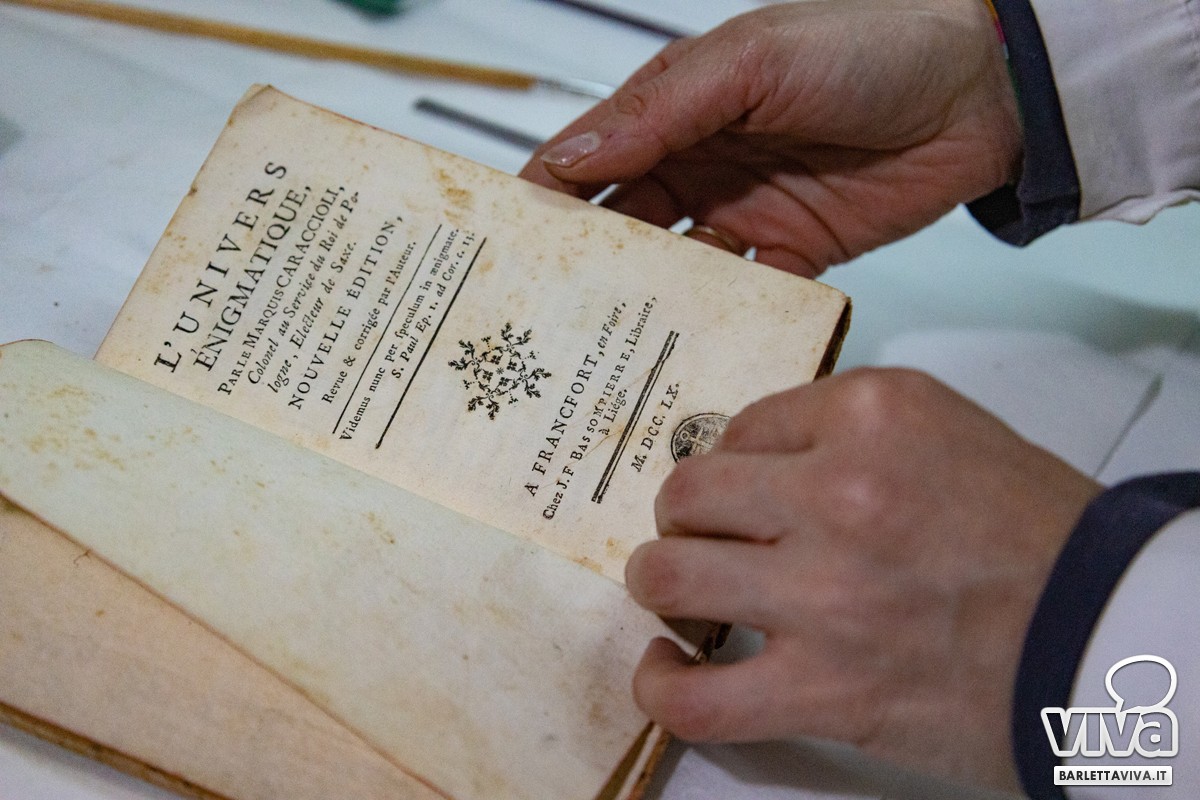 L'UNIVERS
ÉNIGMATIQUE,
PAR LE MARQUIS CARACCIOLI,
Colonel au Service du Roi de Po-
logne, Electeur de Saxe.
NOUVELLE ÉDITION,
Revue & corrigée par l'Auteur.
Videmus nunc per speculum in ænigmate.
S. Paul Ep. 1. ad Cor. c. 13.
A FRANCFORT, en Foire,
Chez J. F BASSOMPIERRE, Libraire,
à Liége.
M. DCC. LX.
viva
BARLETTAVIVA.IT